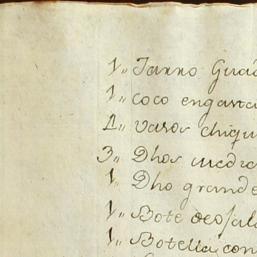 1,, Jarro Gua
1,, coco engasta
1,, vasos chiqu
3,, Dhos media
1,, Dho grande
1,, Bote de
1,, Botella con